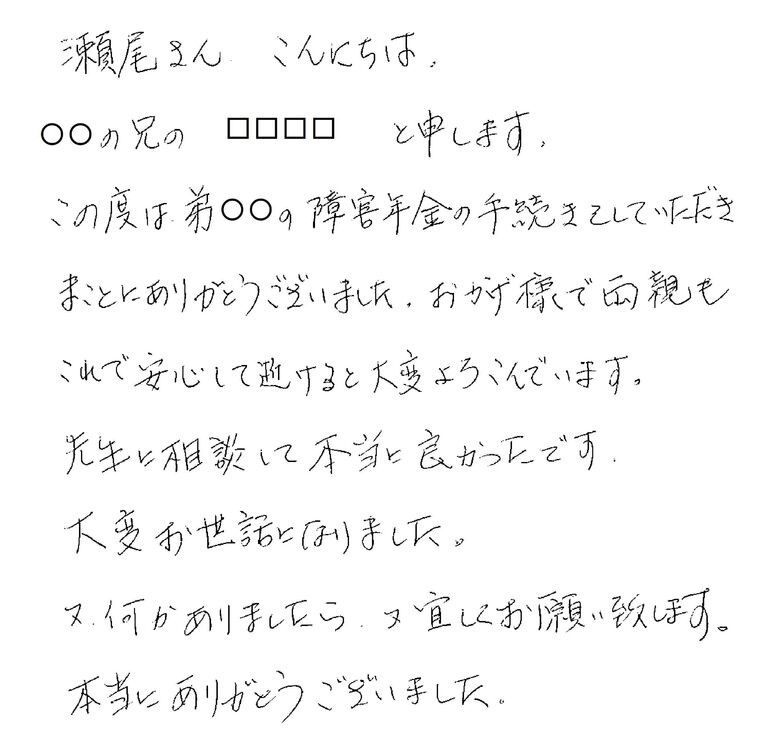 瀬尾さん こんにちは.
○○の兄の □□□□ と申します.
この度は弟○○の障害年金の手続きをしていただき
まことにありがとうございました. おかげ様で両親も
これで安心して逝けると大変よろこんでいます。
先生に相談して本当に良かったです.
大変お世話になりました。
又.何かありましたら.又宜しくお願い致します。
本当にありがとうございました.